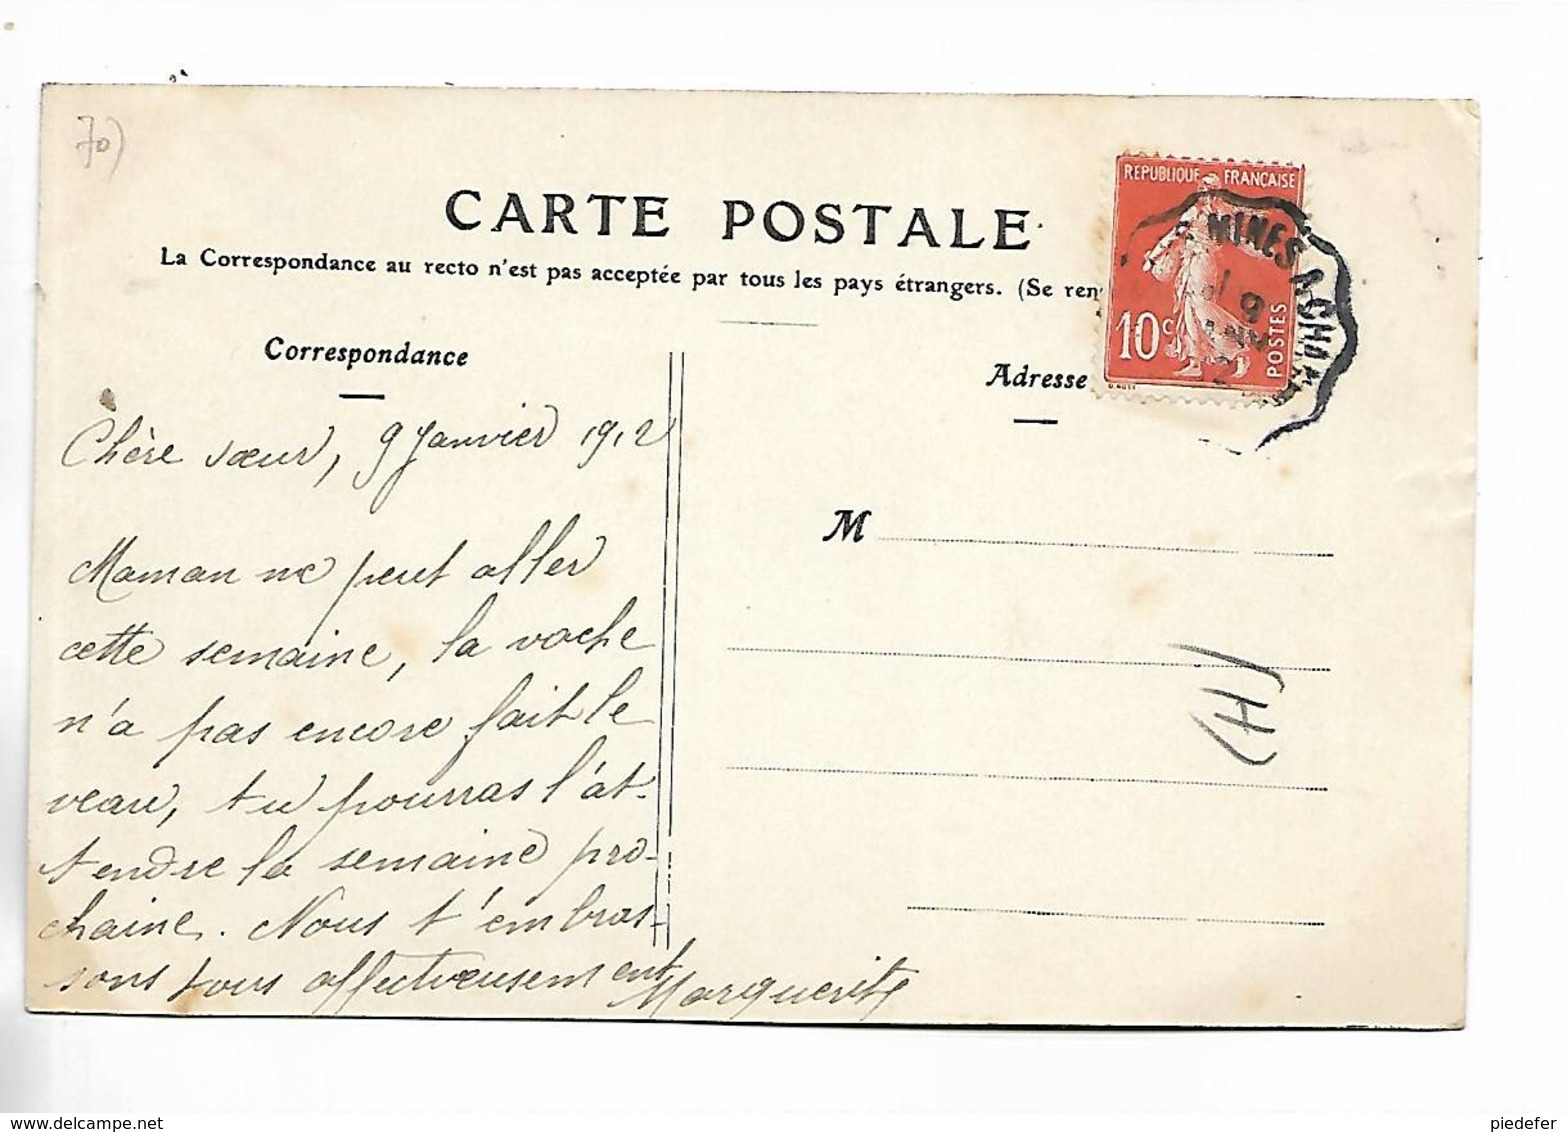 70)
CARTE POSTALE
La Correspondance au recto n'est pas acceptée par tous les pays étrangers. (Se ren
REPUBLIQUE FRANÇAISE
10c
POSTES
MINES A CHA
9
Correspondance
Adresse
Chère sœur, 9 Janvier 1912
Maman ne peut aller
cette semaine, la vache
n'a pas encore fait le
veau, tu pourras l'at-
tendre la semaine pro-
chaine. Nous t'embras-
sons tous affectueusement
Marguerite
M
(H)
delcampe.net
piedefer